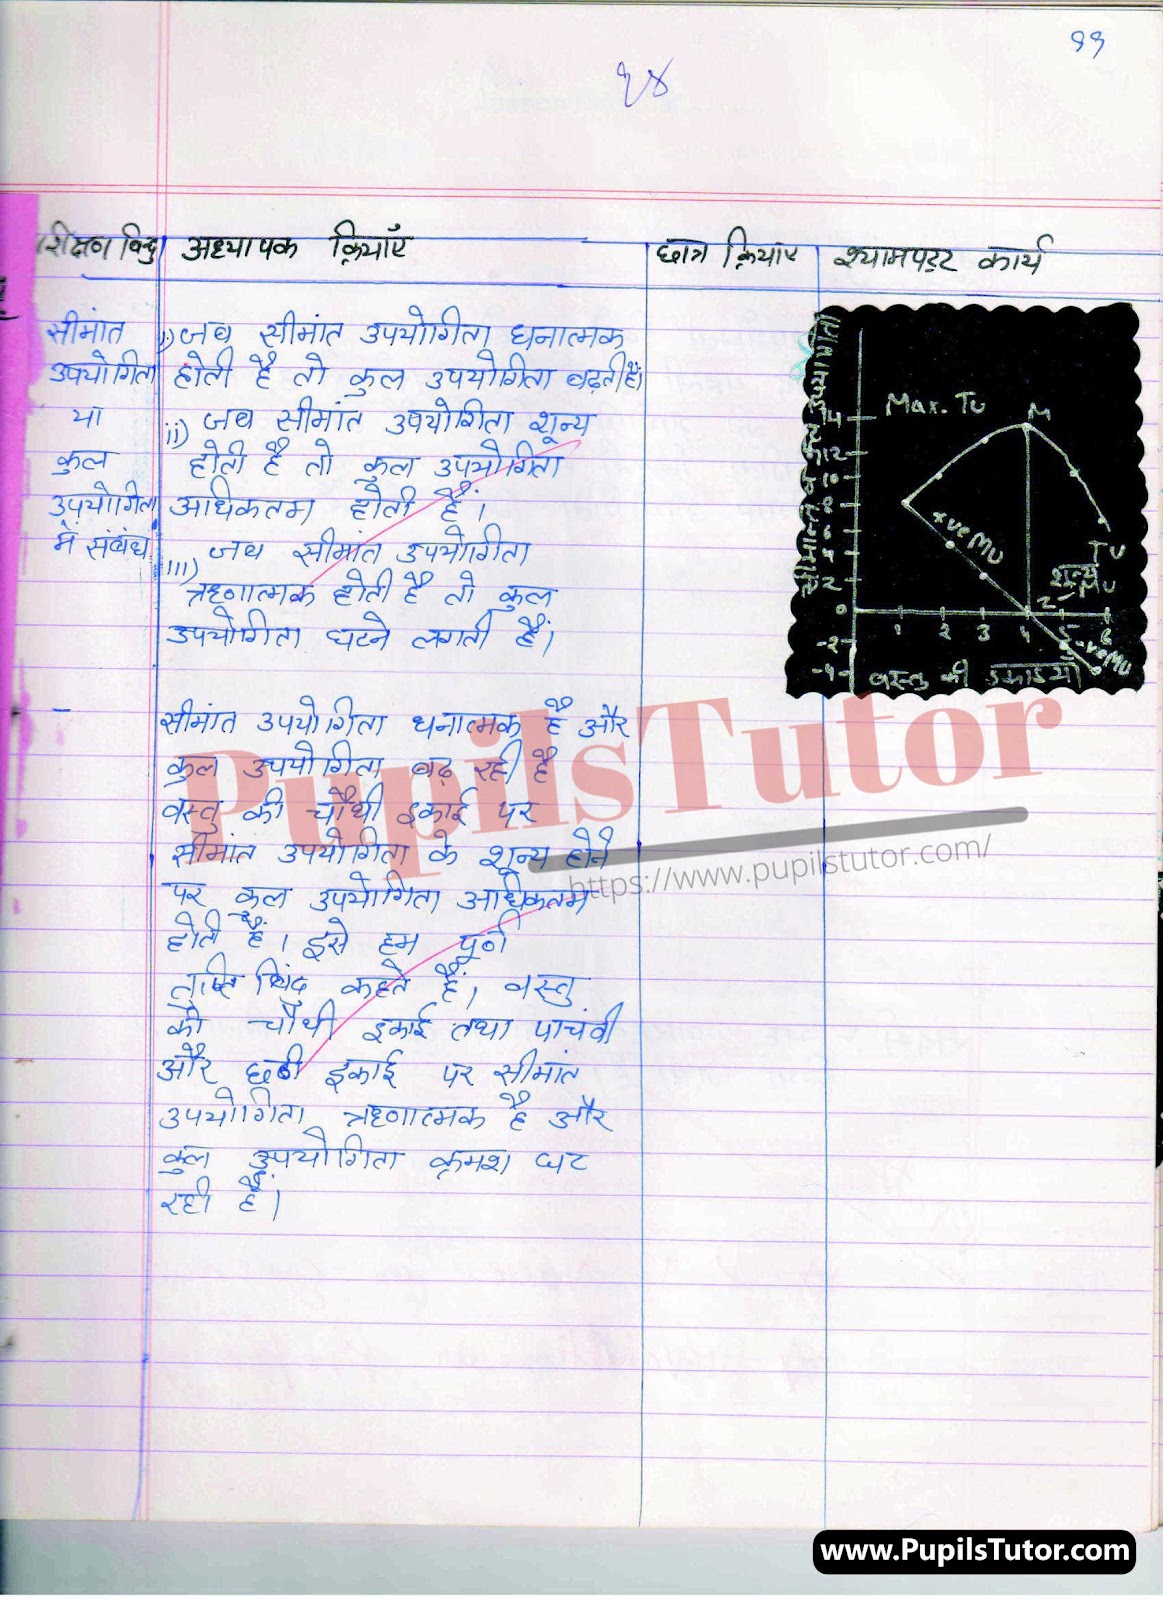 ११
१४
शिक्षण बिन्दु अध्यापक क्रियाएँ छात्र क्रियाएं श्यामपट्ट कार्य
सीमांत
उपयोगिता
या
कुल
उपयोगिता
में संबंध
i) जब सीमांत उपयोगिता धनात्मक
होती है तो कुल उपयोगिता बढ़ती है।
ii) जब सीमांत उपयोगिता शून्य
होती है तो कुल उपयोगिता
अधिकतम होती हैं।
iii) जब सीमांत उपयोगिता
ऋणात्मक होती है तो कुल
उपयोगिता घटने लगती हैं।
सीमांत उपयोगिता धनात्मक है और
कुल उपयोगिता बढ़ रही है
वस्तु की चौथी इकाई पर
सीमांत उपयोगिता के शून्य होने
पर कुल उपयोगिता अधिकतम
होती हैं। इसे हम पूर्ण
तृप्ति बिंदु कहते हैं। वस्तु
की चौथी इकाई तथा पाचंवी
और छठी इकाई पर सीमांत
उपयोगिता ऋणात्मक है और
कुल उपयोगिता क्रमश घट
रही हैं।
सीमांत व कुल उपयोगिता
Max. TU M
14
12
10
8
6
4
2
0
-2
-4
+ve MU
TU
शून्य
MU
Z
1 2 3 4 5 6
-ve MU
वस्तु की इकाइयाँ
PupilsTutor
https://www.pupilstutor.com/
www.PupilsTutor.com